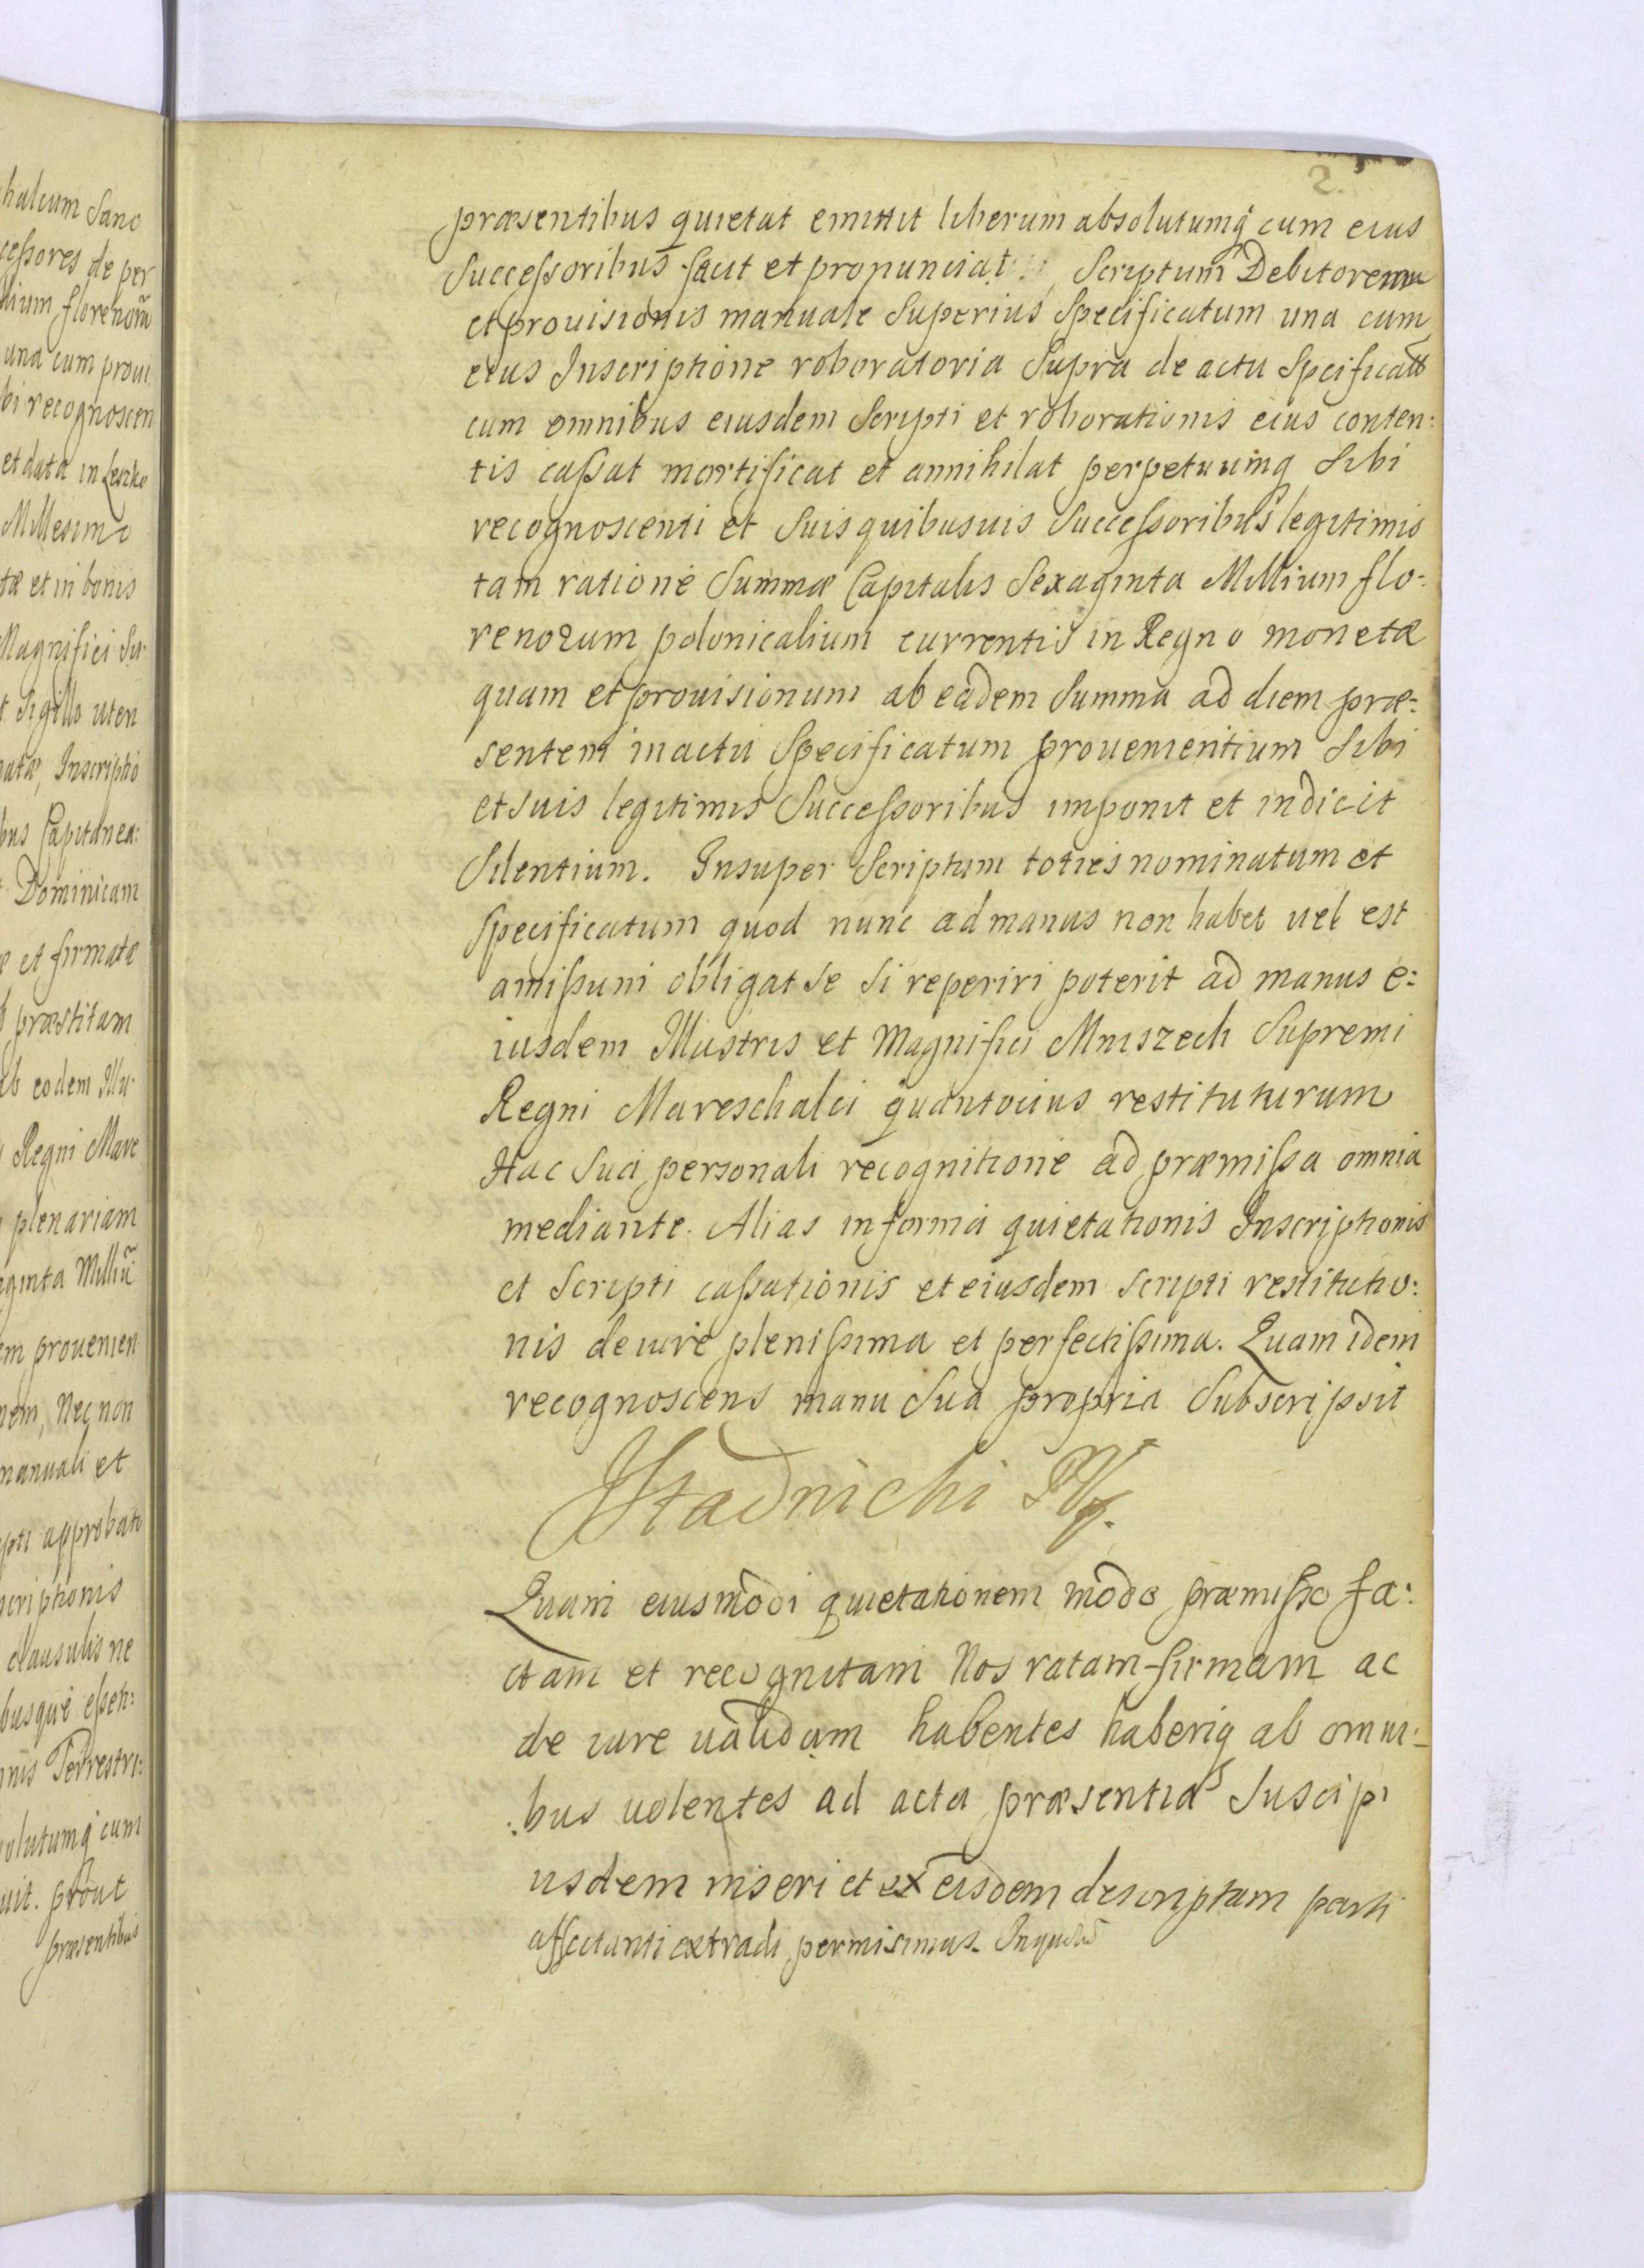 2.
præsentibus quietat emittit liberum absolutumq cum eius
Successoribus facit et pronunciat Scriptum Debitorem
et prouisionis manuale Superius Specificatum una cum
eius Inscriptione roboratoria Supra de actu Spcificatt
cum omnibus eiusdem Scripti et roborationis eius conten:
tis cassat mortificat et annihilat perpetuumq Sibi
recognoscenti et Suis quibusuis Successoribus legitimis
tam ratione Summæ Capitalis Sexaginta Millium flo:
renorum polonicalium currentis in Regno monetæ
quam et prouisionum ab eadem Summa ad diem præ:
sentem in actu Specificatum prouenientium Sibi
et suis legitimis Successoribus imponit et indicit
Silentium. Insuper Scriptum toties nominatum et
Specificatum quod nunc ad manus non habet uel est
amissum obligat se Si reperiri poterit ad manus e:
iusdem Illustris et Magnifici Mniszech Supremi
Regni Mareschalci quantocius restituturum
Hac Sua personali recognitione ad præmissa omnia
mediante. Alias in forma quietationis Inscriptionis
et Scripti cassationis et eiusdem Scripti restitutio:
nis de iure plenissima et perfectissima. Quam idem
recognoscens manu Sua propria Subscripsit
JStadnichi
Quam eiusmodi quietationem modo præmisso fa:
ctam et recognitam Nos ratam firmam ac
de iure ualidam habentes haberiq ab omni:
:bus uolentes ad acta præsentia Suscipi
iisdem inseri et ex eisdem descriptam parti
affectanti extradi permisimus.
halcum Sanc
cessores de per
lium florenorũ
una cum proui
bi recognoscen
et data in Leszko
Millesimo
tæ et in bonis
Magnifici Su
t Sigillo uten
natæ, Inscriptio
bus Capitanea:
Dominicam
æ et firmatæ
præstitam
ab eodem Illu
Regni Mare
plenariam
ginta Milliũ
em prouenien
nem, Nec non
manuali et
pti approbatio
scriptionis
clausulis ne
busque essen:
nis Terrestri:
olutumq cum
uit. prout
præsentibus